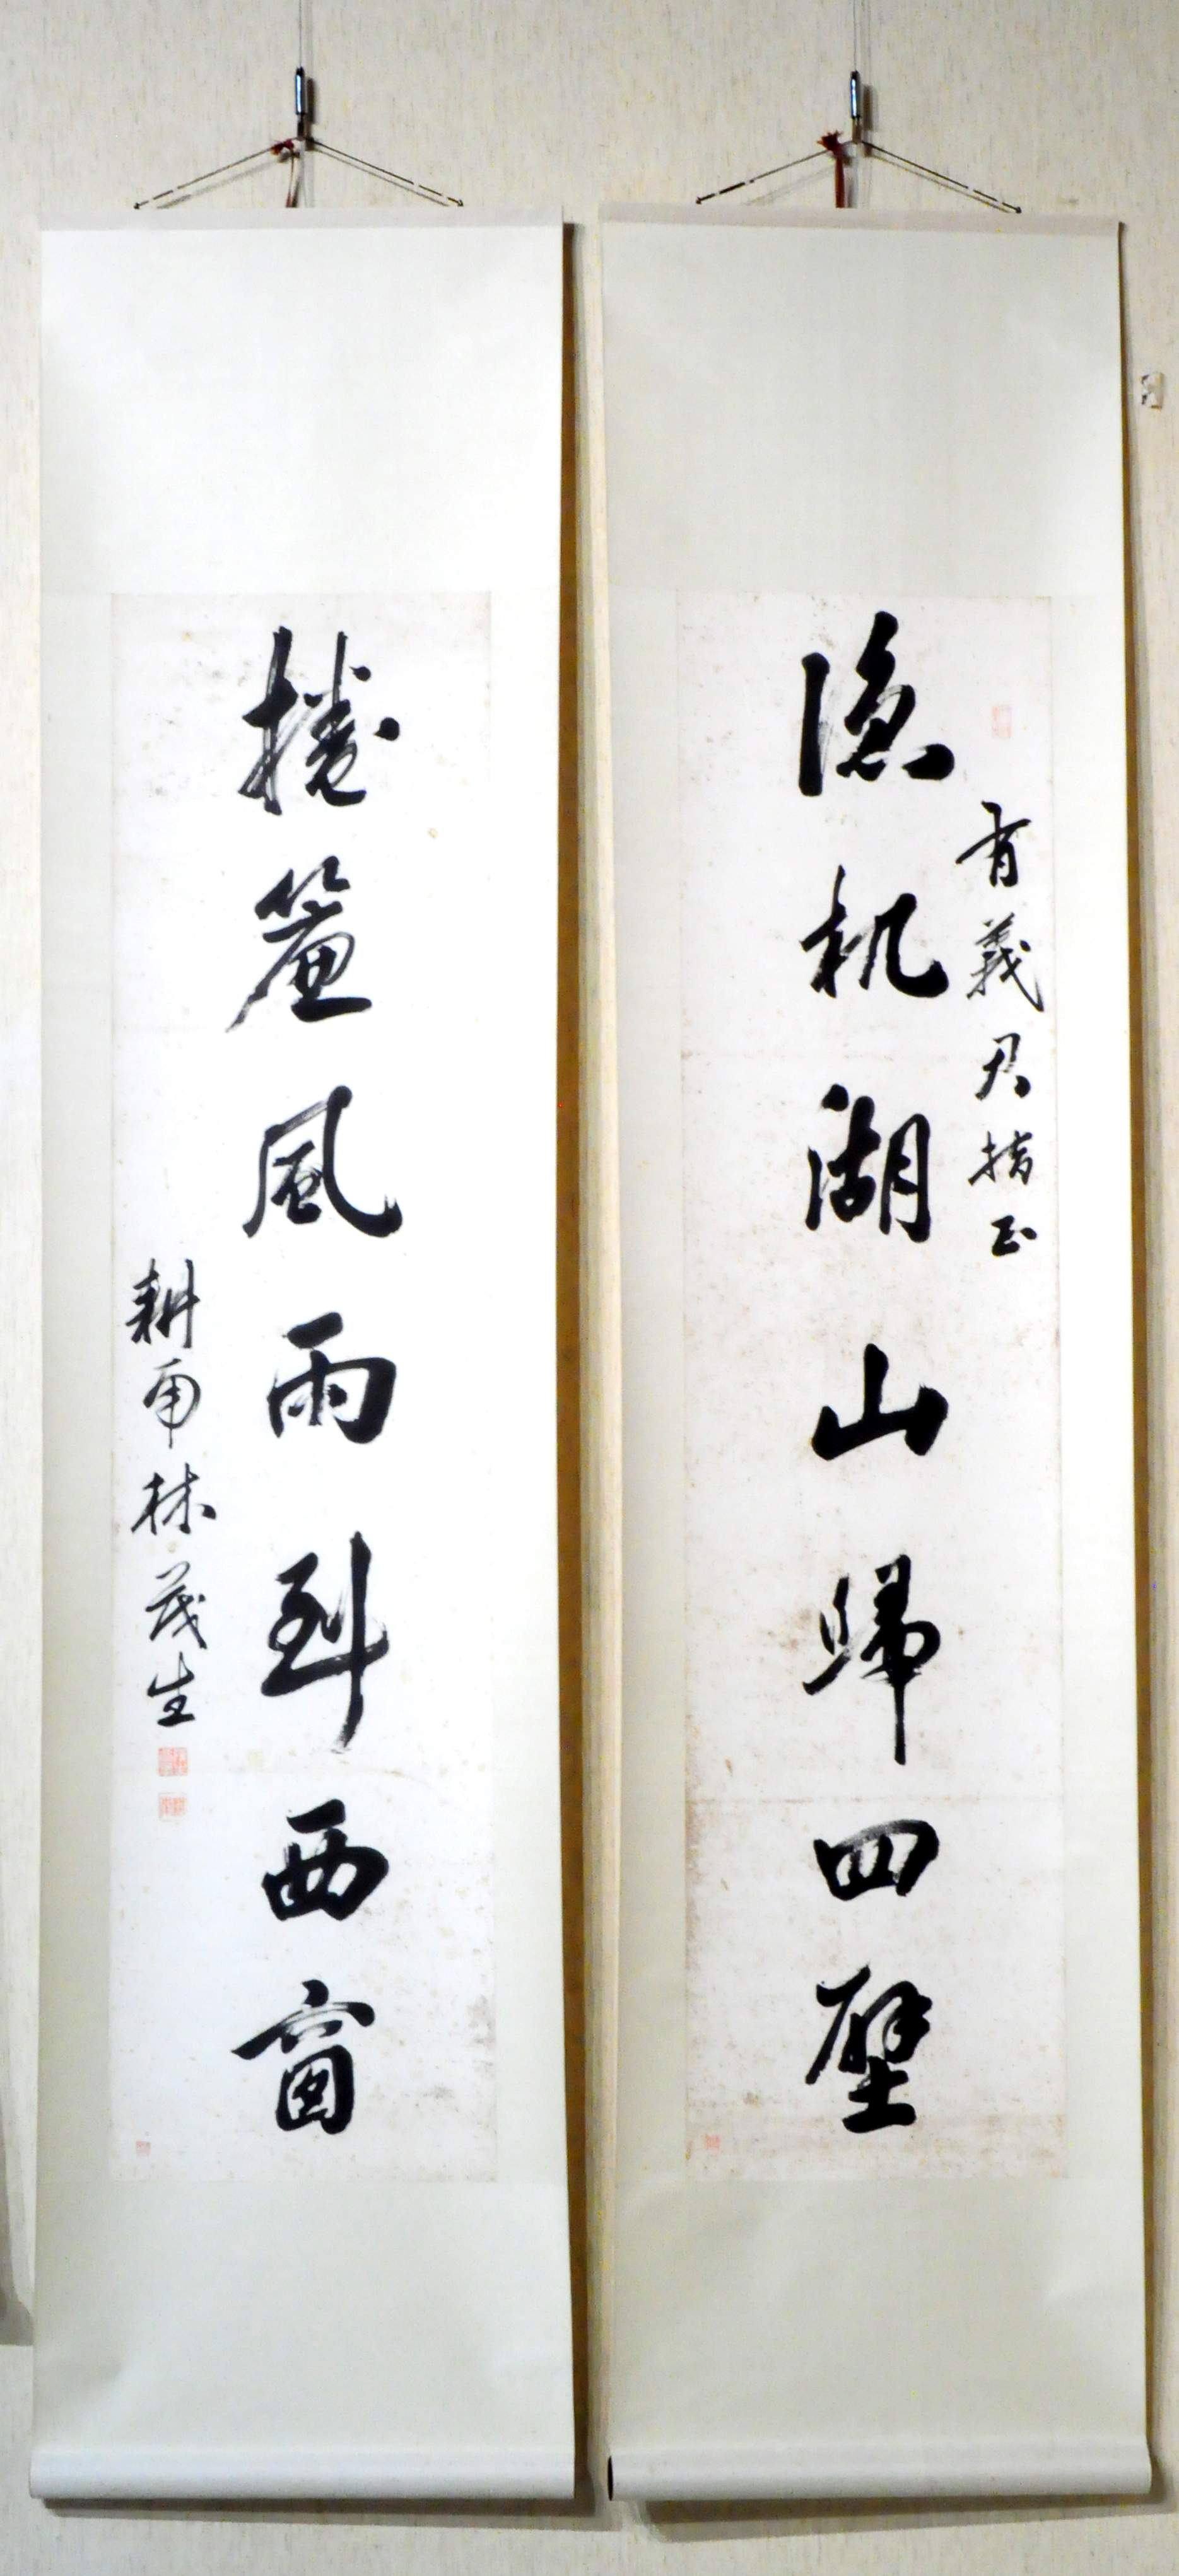 隱机湖山歸四壁
有義君指正
捲簾風雨到西窗
耕南林茂生